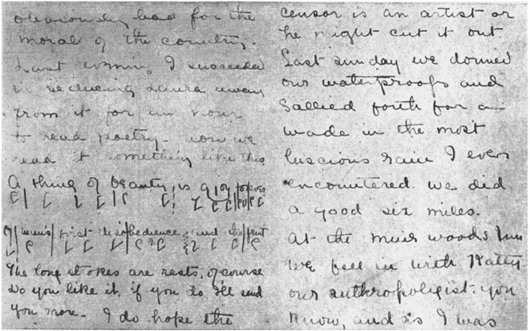 obviously bad for the
moral of the country.
Last evening I succeeded
in seducing Laura away
from it for an hour
to read poetry - now we
read it something like this
A thing of beauty is a joy forever
Of man's first disobedience, and the fruit
The long strokes are rests, of course
Do you like it. if you do Ill send
you more. I do hope the
censor is an artist or
he might cut it out.
Last sunday we donned
our waterproofs and
Sallied forth for a
wade in the most
luscious rain I ever
encountered. we did
a good six miles.
At the muir woods Inn
we fell in with
our anthropologist - you
know, and as I was